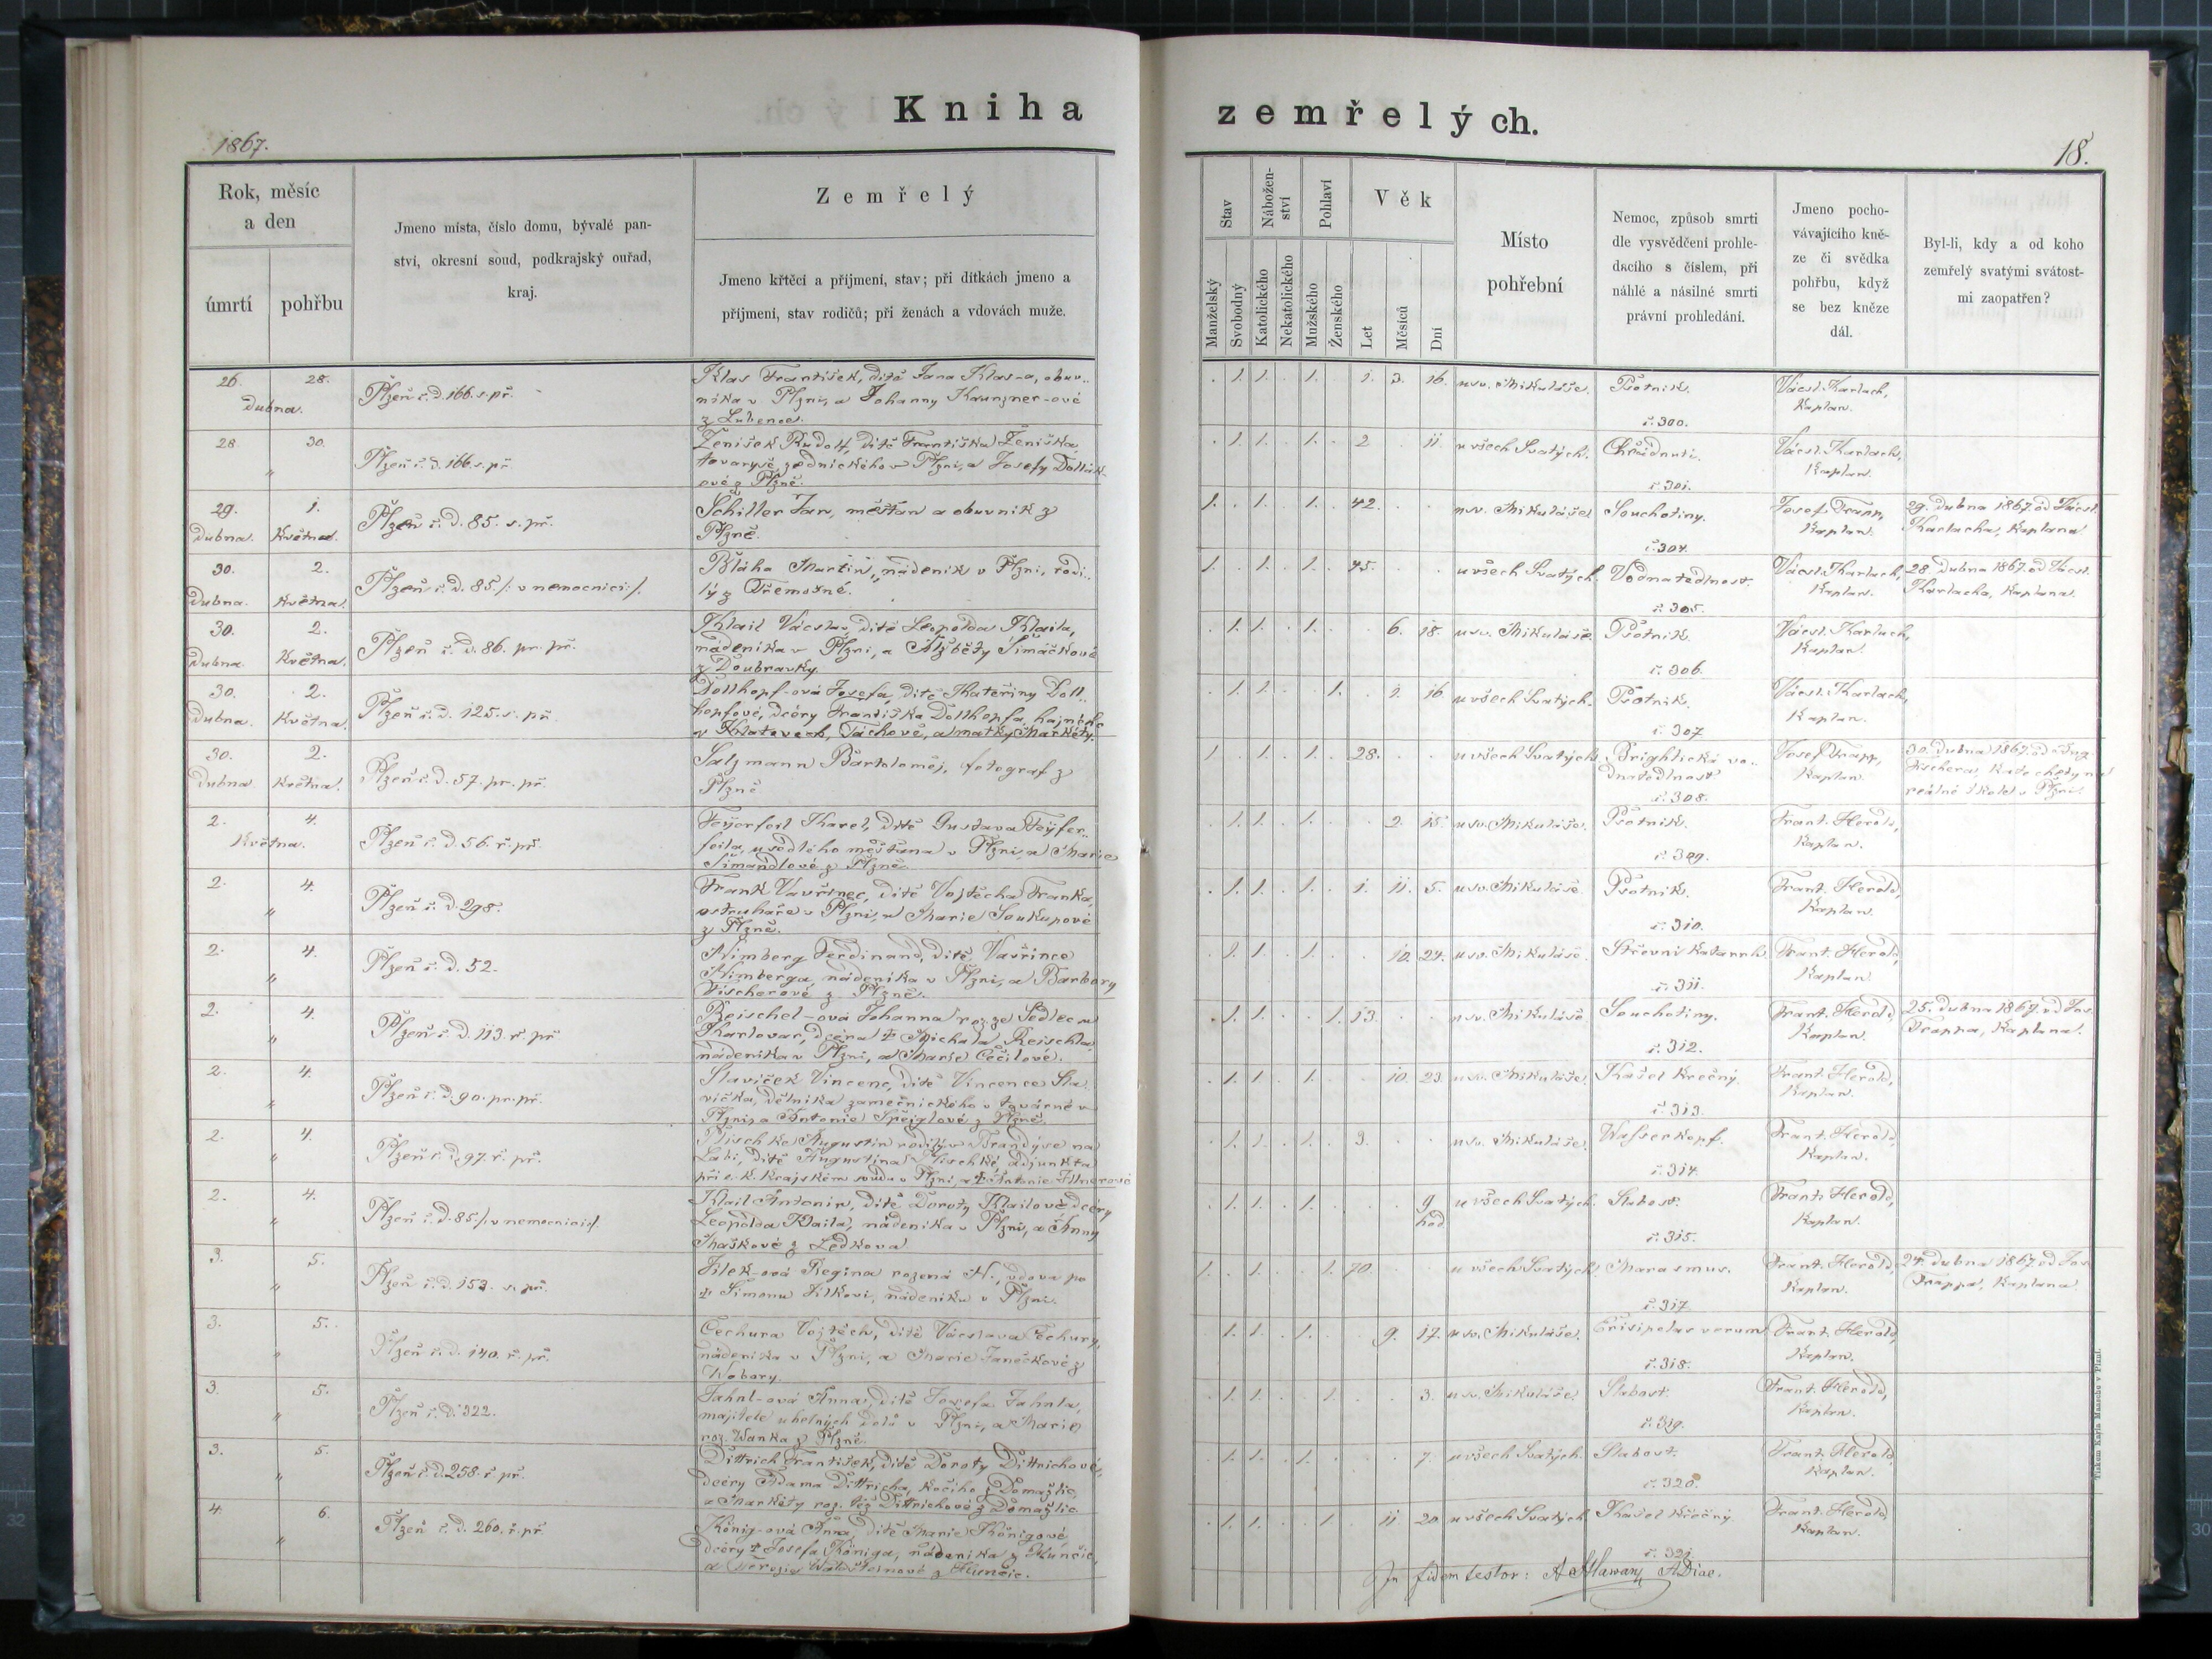 Kniha zemřelých.
1867.
18.
Rok, měsíc
a den
úmrtí
pohřbu
Jmeno místa, číslo domu, bývalé pan-
ství, okresní soud, podkrajský ouřad,
kraj.
Zemřelý
Jmeno křtěcí a příjmení, stav; při dítkách jmeno a
příjmení, stav rodičů; při ženách a vdovách muže.
Stav
Manželský
Svobodný
Nábožen-
ství
Katolického
Nekatolického
Pohlaví
Mužského
Ženského
Věk
Let
Měsíců
Dní
Místo
pohřební
Nemoc, způsob smrti
dle vysvědčení prohle-
dacího s číslem, při
náhlé a násilné smrti
právní prohledání.
Jmeno pocho-
vávajícího kně-
ze či svědka
pohřbu, když
se bez kněze
dál.
Byl-li, kdy a od koho
zemřelý svatými svátost-
mi zaopatřen?
26. 28.
Dubna.
Plzeň č. D. 166. s. př.
Klas František, dítě Jana Klas-a, obuv-
níka v Plzni, a Johanny Kaunzner-ové
z Lubence.
1. 1. 1. 1. 3. 16. u sv. Mikuláše. Psotník.
č. 300.
Václ. Karlach,
Kaplan.
28. 30.
"
Plzeň č. D. 166. s. př.
Ženíšek Rudolf, dítě Františka Ženíška,
tovaryše zednického v Plzni, a Josefy
ové z Plzně.
1. 1. 1. 2. 11. u všech Svatých. Chřadnutí.
č. 301.
Václ. Karlach,
Kaplan.
29. 1.
Dubna. Května.
Plzeň č. D. 85. s. př.
Schiller Jan, měštan a obuvník z
Plzně.
1. 1. 1. 42. u sv. Mikuláše Souchotiny.
č. 304.
Josef Trapp,
Kaplan.
29. Dubna 1867. od Václ.
Karlacha, Kaplana
30. 2.
Dubna. Května.
Plzeň č. D. 85. /: v nemocnici :/.
Bláha Martin, nádeník v Plzni, rodi-
lý z Třemošné.
1. 1. 1. 45. u všech Svatých. Vodnatedlnost.
č. 305.
Václ. Karlach,
Kaplan.
28. Dubna 1867. od Václ.
Karlacha, Kaplana
30. 2.
Dubna Května.
Plzeň č. D. 86. pr. př.
Klail Václav, dítě Leopolda Klaila,
nádeníka v Plzni, a Alžběty Šimáčkové
z Doubravky.
1. 1. 1. 6. 18. u sv. Mikuláše Psotník.
č. 306.
Václ. Karlach,
Kaplan.
30. 2.
Dubna. Května.
Plzeň č. D. 125. s. př.
Dollhopf-ová Josefa, dítě Kateřiny Doll-
hopfové, dcery Františka Dollhopfa, hajného
v Tachově, a matky Markéty.
1. 1. 1. 1. 16 u všech Svatých. Psotník.
č. 307
Václ. Karlach,
Kaplan.
30. 2.
Dubna Května.
Plzeň č. D. 57. pr. př.
Salzmann Bartoloměj, fotograf z
Plzně
1 1. 1. 28. u všech Svatých Brightická vo-
dnatedlnost
č. 308.
Josef Trapp,
Kaplan.
30. Dubna 1867. od Aug.
Fischera, Katechety na
reálné škole v Plzni.
2. 4.
Května.
Plzeň č. D. 56. ř. př.
Feyerfeil Karel, dítě Gustava Feyfer-
feila, usedlého měštana v Plzni, a Marie
Šimandlové z Plzně.
1. 1. 1. 2. 15. u sv. Mikuláše. Psotník.
č. 309.
Frant. Herold,
Kaplan.
2. 4.
"
Plzeň č. D. 298.
Frank Vavřinec, dítě Vojtěcha Franka,
ostruháře v Plzni, a Marie Soukupové
z Plzně.
1. 1. 1. 1. 11. 5. u sv. Mikuláše Psotník.
č. 310.
Frant. Herold,
Kaplan.
2. 4.
"
Plzeň č. D. 52.
Nimberg Ferdinand, dítě Vavřince
Nimberga, nádeníka v Plzni, a Barbory
Fischerové z Plzně.
1. 1. 1. 10. 24. u sv. Mikuláše. Střevní Katarrh.
č. 311.
Frant. Herold,
Kaplan.
2. 4.
"
Plzeň č. D. 113. ř. př.
Reischel-ová Johanna roz. ze Sedlec u
Karlovar, dcera † Michala Reischla,
nádeníka v Plzni, a Marie Cečilové.
1. 1. 1. 13. u sv. Mikuláše Souchotiny.
č. 312.
Frant. Herold,
Kaplan.
25. Dubna 1867. od Jos.
Trappa, Kaplana.
2. 4.
"
Plzeň č. D. 90. pr. př.
Slavíček Vincenc, dítě Vincence Sla-
víčka, dělníka zamečnického v továrně v
Plzni, a Antonie Speiglové z Plzně.
1. 1. 1. 10. 23. u sv. Mikuláše. Kašel Křečný.
č. 313.
Frant. Herold,
Kaplan.
2. 4.
"
Plzeň č. D. 97. ř. př.
Plischke Augustin rodilý v Brandýse na
Labi, dítě Augustina Plischke, adjunkta
při c. k. Krajském soudu v Plzni, a † Antonie
1. 1. 1. 3. u sv. Mikuláše. Wasserkopf.
č. 314.
Frant. Herold,
Kaplan.
2. 4.
"
Plzeň č. D. 85. /: v nemocnici :/
Klail Antonín, dítě Doroty Klailové, dcery
Leopolda Klaila, nádeníka v Plzni, a Anny
Maškové z Ledkova
1. 1. 1. 9
hod. u všech Svatých. Slabost.
č. 315.
Frant. Herold,
Kaplan.
3. 5.
"
Plzeň č. D. 153. s. př.
Jilek-ová Regina rozená N., vdova po
† Šimonu Jilkovi, nádeníku v Plzni.
1. 1. 1. 70. u všech Svatých. Marasmus.
č. 317
Frant. Herold,
Kaplan.
24. Dubna 1867. od Jos.
Trappa, Kaplana
3. 5.
"
Plzeň č. D. 140. ř. př.
Čechura Vojtěch, dítě Václava Čechury,
nádeníka v Plzni, a Marie Janečkové z
Wobory.
1. 1. 1. 9. 17. u sv. Mikuláše. Erisipelas verum
č. 318.
Frant. Herold,
Kaplan.
3. 5.
"
Plzeň č. D. 322.
Jahnl-ová Anna, dítě Josefa Jahnla,
majitele uhelných dolů v Plzni, a Marie
roz. Wanka z Plzně.
1. 1. 1. 3. u sv. Mikuláše. Slabost.
č. 319.
Frant. Herold,
Kaplan.
3. 5.
"
Plzeň č. D. 258. ř. př.
Dittrich František, dítě Doroty Dittrichové,
dcery Adama Dittricha, Kočího z Domažlic,
a Markéty roz. též Dittrichové z Domažlic.
1. 1. 1. 7. u všech Svatých. Slabost.
č. 320.
Frant. Herold,
Kaplan.
4. 6.
"
Plzeň č. D. 260. ř. př.
König-ová Anna, dítě Marie Königové
dcery † Josefa Königa, nádeníka z
a Terezie z
1. 1. 1. 11 20. u všech Svatých Kašel Křečný.
č. 321
Frant. Herold,
Kaplan.
In fidem testor:
Tiskem Karla Maascha v Plzni.